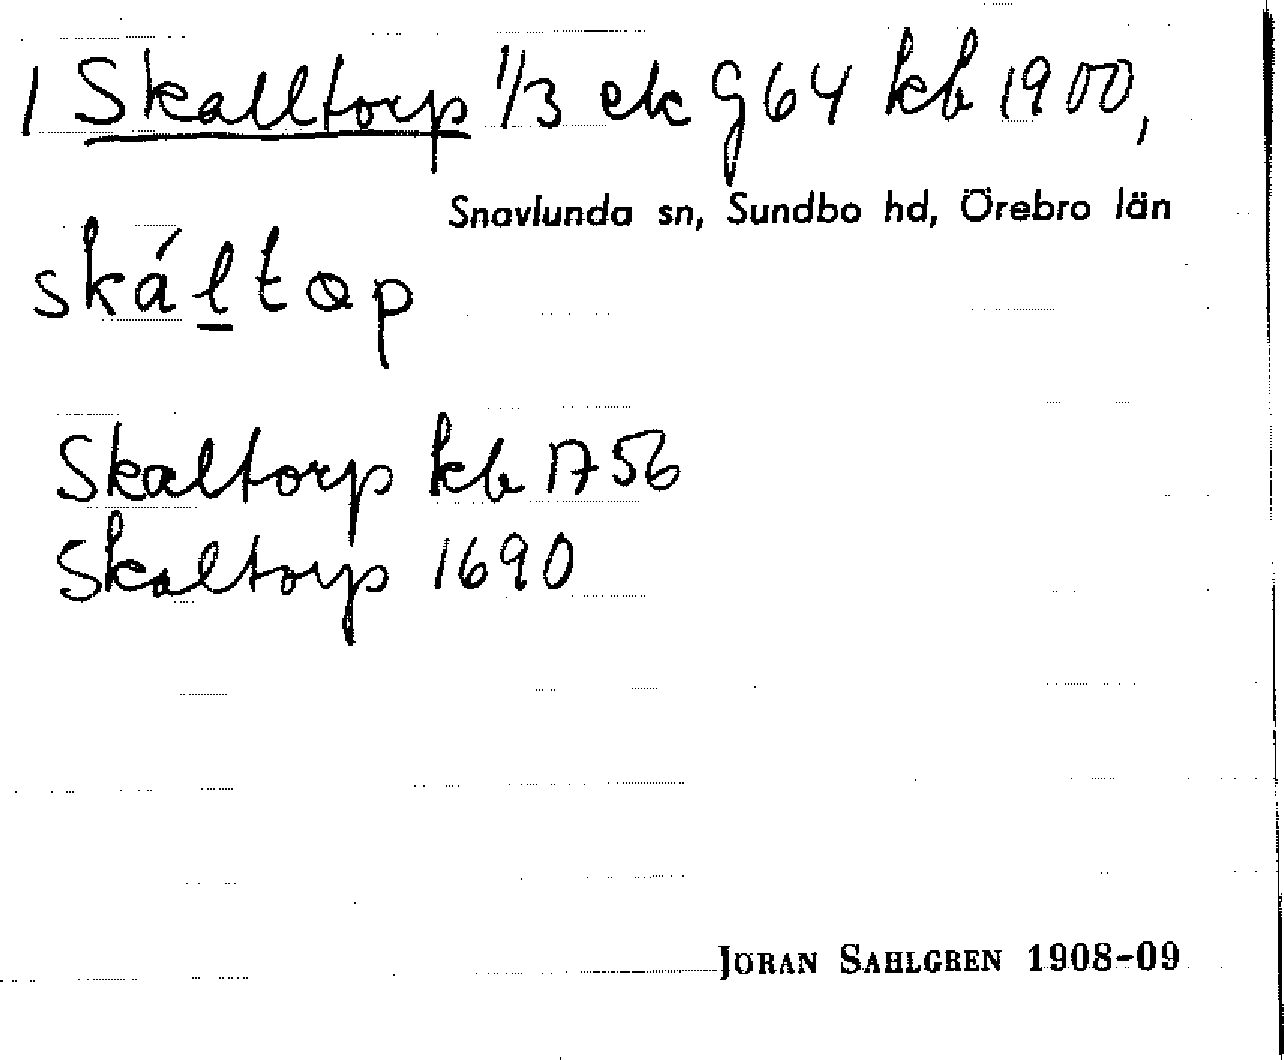 1 Skalltorp 1/3 ek G64 kb 1900,
Snavlunda sn, Sundbo hd, Örebro län
skáltop
Skaltorp kb 1756
Skaltorp 1690
JÖRAN SAHLGREN 1908-09